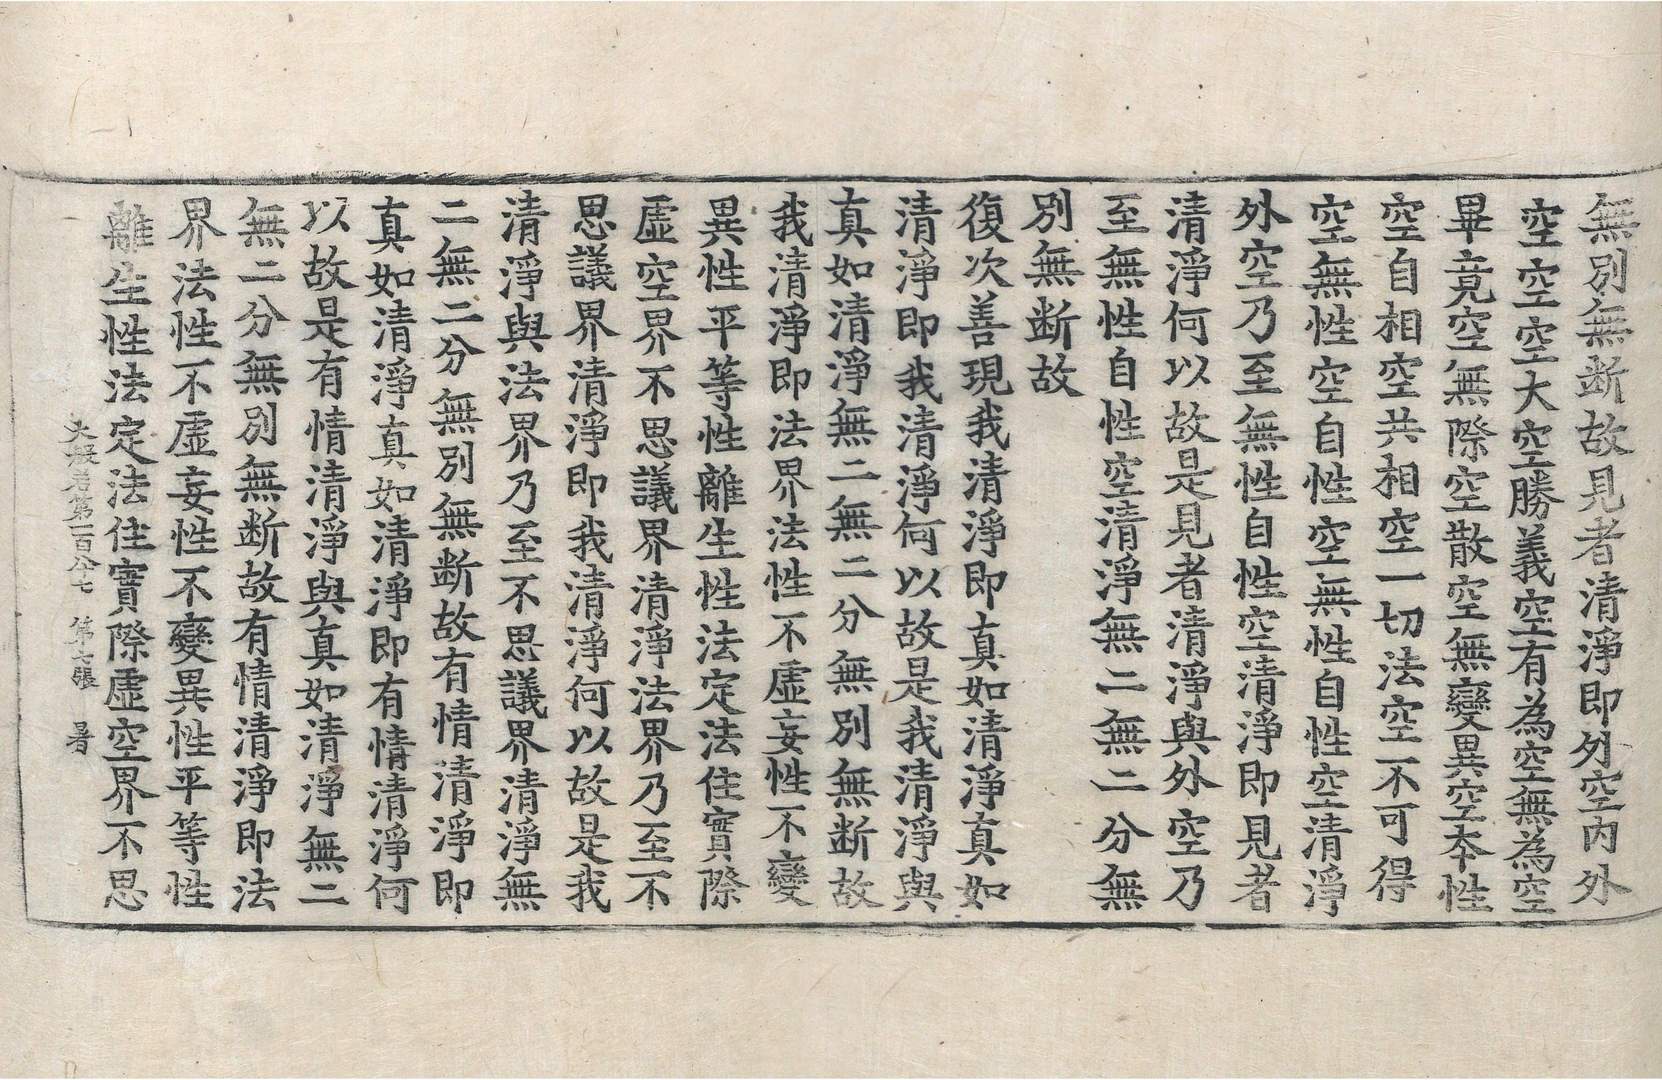 無別無断故見者清淨即外空内外
空空空大空勝義空有為空無為空
畢竟空無際空散空無變異空夲性
空自相空共相空一切法空不可得
空無性空自性空無性自性空清淨
外空乃至無性自性空清淨即見者
清淨何以故是見者清淨與外空乃
至無性自性空清淨無二無二分無
別無断故
復次善現我清淨即真如清淨真如
清淨即我清淨何以故是我清淨與
真如清淨無二無二分無別無断故
我清淨即法界法性不虛妄性不變
異性平等性離生性法定法住實際
虛空界不思議界清淨法界乃至不
思議界清淨即我清淨何以故是我
清淨與法界乃至不思議界清淨無
二無二分無別無断故有情清淨即
真如清淨真如清淨即有情清淨何
以故是有情清淨與真如清淨無二
無二分無別無断故有情清淨即法
界法性不虛妄性不變異性平等性
離生性法定法住實際虛空界不思
大般若第一百八七 第七張 暑